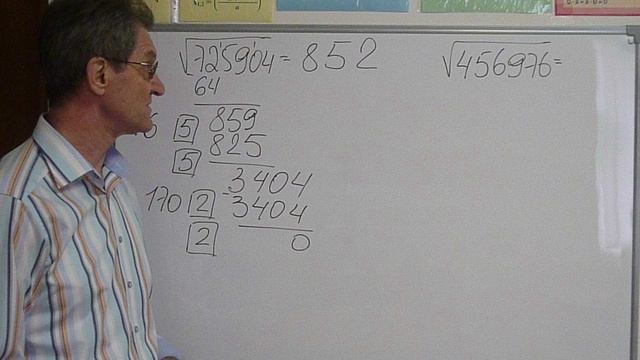 √725904 = 852
64
6 5 859
5 825
3404
170 2 - 3404
2 0
√456976 =